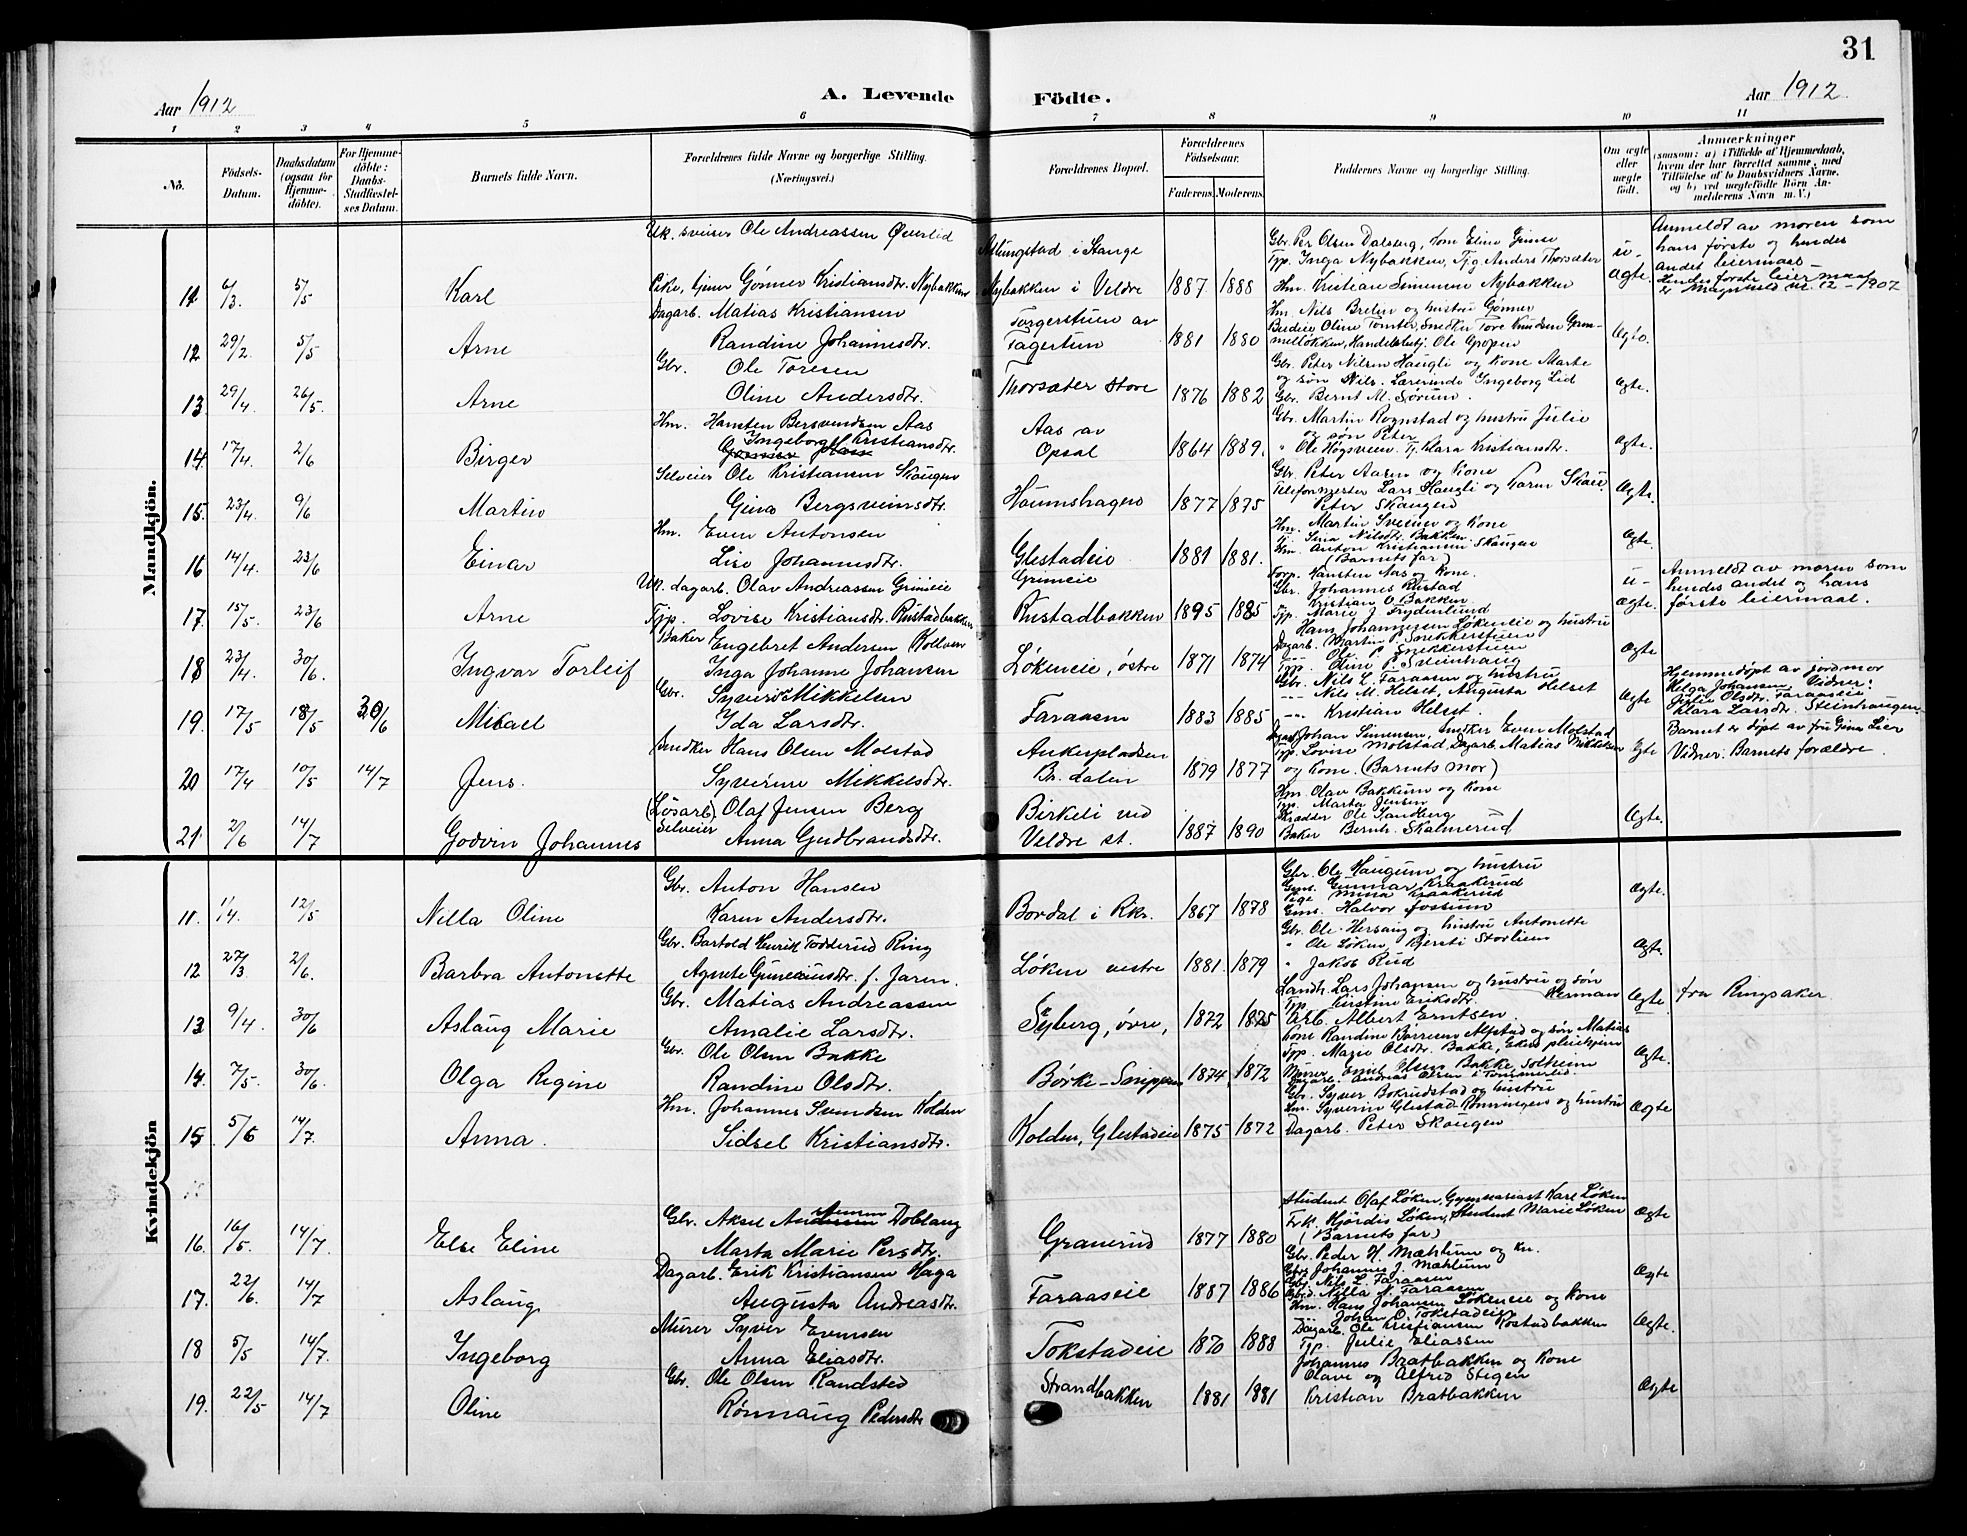 31
Aar 1912 A. Levende Födte. Aar 1912
1 2 3 4 5 6 7 8 9 10 11
No. Födsels-Datum. Daabsdatum (ogsaa for Hjemme-döbte). For Hjemme-döbte: Daabs-Stadfæstel-ses Datum. Barnets fulde Navn. Forældrenes fulde Navne og borgerlige Stilling. (Næringsvei.) Forældrenes Bopæl. Forældrenes Födselsaar. Faderens. Moderens. Faddernes Navne og borgerlige Stilling. Om ægte eller uægte födt. Anmærkninger (saasom: a) i Tilfælde af Hjemmedaab, hvem der har forrettet samme, med Tilföielse af to Daabsvidners Navne, og b) ved uægtefödte Börn An-melderens Navn m. V.)
Mandkjön.
Uk. sveiser Ole Andreassen Øverlid
i Stange
Gbr. Per Olsen Dalsberg,
Anmeldt av moren som
hans første og hendes
Tjp. Inga Nybakken, Tjg. Anders Thorsæter
u-
andet leiermaal-
11 6/3. 5/5 Karl Pike, Gønner Kristiansdtr. Nybakken Nybakken i Veldre 1887 1888 Hm. Kristian Simensen Nybakken ægte.
Hendes første leiermaal
12 - 1907
Dagarb. Matias Kristiansen
av
Hm. Nils Brelin og hustru Gønner
12 29/2. 5/5 Arne Randine Johannesdtr. Fagertun 1881 1880 Handelsbetj. Ole Gropen Ægte.
Gbr. Ole Toresen
Gbr. Peter Nilsen Haugli og Kone Marte
og søn Nils. Lærerinde Ingeborg Lid
13 29/4. 26/5. Arne Oline Andersdtr. Thorsæter store 1876 1882 Gbr. Bernt M. Sørum. Ægte.
Hm. Hansten Bersvendsen Aas
Aas av
Gbr. Martin Rognstad og hustru Julie
og søn Peter
14. 17/4. 2/6 Birger Ingeborg Kristiansdtr. Opsal 1864 1889. " Ole Høgsveen. Tj. Klara Kristiansdtr. Ægte.
Selveier Ole Kristiansen Skaugen
Gbr. Peter Aasen og Kone
Telefonmester Lars Haugli og Karen Skau.
15. 23/4. 9/6 Martin Gina Bergsveinsdtr. 1877 1875 Peter Skaugen Ægte.
Hm. Even Antonsen
Hm. Martin Sveum og Kone
Tj. Sina Nilsdtr. Bakken.
16 14/4. 23/6 Einar Lise Johannesdtr. Glestadeie 1881 1881. Hm. Anton Kristiansen Skaugen Ægte.
(Barnets far)
Uk. dagarb. Olav Andreassen Grimeie
Grimeie
Forp. Hansten Aas og Kone.
Gbr. Johannes Rustad
u-
Anmeldt av moren som
hendes andet og hans
første leiermaal.
17. 15/5. 23/6 Arne Tjp. Lovise Kristiansdtr. Rustadbakken Rustadbakken 1895 1885 Kristian O. Bakken ægte.
Tjp. Marie Frydenlund
Baker Engebret Andersen Kolven
Hans Johannessen Løkeneie og hustru
Dagarb. Martin P. Snekkerstuen
18 23/4. 30/6. Ingvar Torleif Inga Johanne Johansen Løkeneie, østre 1871 1874 Ole P. Snekkerstuen Ægte
Tjp. Oline P. Steinhaug
Gbr. Syver Mikkelsen
Gbr. Nils L. Faraasen og hustru
Hjemmedøpt av jordmor
Helga Johansen. Vidner:
19. 17/5 18/5 30/6 Mikael Ida Larsdtr. Faraasen 1883 1885 Nils M. Helset, Augusta Helset Ægte
Kristian Helset.
Klara Larsdtr. Steinhaugen
Snedker Hans Olsen Molstad
Ankerpladsen
Johan Simensen, Snedker Even Molstad
Tjp. Lovise Molstad, Dagarb. Matias Mikkelsen
Barnet er døpt av fru Gina Lier
20 17/4 10/5 14/7 Jens. Syverine Mikkelsdtr. Br.dalen 1879 1877 og Kone. (Barnets mor) Ægte
Vidner: Barnets forældre.
(Løsarb). Olaf Jensen Berg
Selveier
Birkeli ved
Hm. Olav Bakkum og Kone
Tjp. Marta Jensen
Skrædder Ole Sandberg
21. 2/6 14/7 Godvin Johannes Anna Gudbrandsdtr. Veldre st. 1887 1890 Baker Bernh. Skalmerud Ægte.
Kvindekjön
Gbr. Anton Hansen
Gbr. Ole Haugum og hustru
Gunnar Kraakerud
Pige Mina Kraakerud
11. 1/4. 12/5 Nilla Oline Karen Andersdtr. Bordal i Rkr. 1867 1878 Halvor Fossum Ægte.
Gbr. Bartold Henrik Fodderud Ring
Gbr. Ole Hersaug og hustru Antonette
" Ole Løken, Kjersti Storlien
12 27/3 2/6. Barbra Antonette Agnete f. Jaren. Løken vestre 1881. 1879 " Jakob Rud Ægte.
Gbr. Matias Andreassen
Landh. Lars Johansen og hustru og søn
Tjp. Kirstine Eriksdtr. Herman
13 9/4. 30/6 Aslaug Marie Amalie Larsdtr. Fyberg, øvre, 1872 1875 Arb. Albert Erntsen. Ægte fra Ringsaker.
Gbr. Ole Olsen Bakke
Kone Randine Børresen Alfstad og søn Matias
Tjp. Marie Olsdtr. Bakke,
14. 7/5. 30/6. Olga Regine Randine Olsdtr. Børke-Snippen 1874, 1872 Murer Emil Olsen Bakke Solheim Ægte.
Hm. Johannes Svendsen Kolden
Gbr. Syver Bokrudstad og hustru
Hm. Syverin Glestad Rønningen og hustru
15. 5/6 14/7. Anna. Sidsel Kristiansdtr. Kolden, Glestadeie 1875 1872 Dagarb. Peter Skaugen Ægte
Gbr. Aksel Doblaug
Student Olaf Løken, Gymnasiast Karl Løken
Frk. Hjørdis Løken, Student Marie Løken
16. 16/5. 14/7. Else Eline Marta Marie Persdtr. Granerud 1877 1880 (Barnets far) Ægte
Dagarb. Erik Kristiansen Haga
Gbr. Peder H. Mæhlum og kn.
Gbr. Johannes J. Mæhlum
Gbr. Nils L. Faraasen
17. 22/6. 14/7 Aslaug Augusta Andreasdtr. Faraaseie 1887 1886 Nilla J. Faraasen Ægte
Murer Syver Evensen
Hm. Hans Johansen Løkeneie og Kone
Johan O. Tokstadeie
Dagarb. Ole Kristiansen Rostadbakken
18 5/5 14/7. Ingeborg Anna Eliasdtr. Tokstadeie 1870 1888 Tj. Julie Eliassen Ægte.
Gbr. Ole Olsen Randsted
Johannes Bratbakken og Kone
Olave og Alfred Stigen
19. 22/5 14/7 Oline Rønnaug Pedersdtr Strandbakken 1881 1881 Kristian Bratbakken Ægte